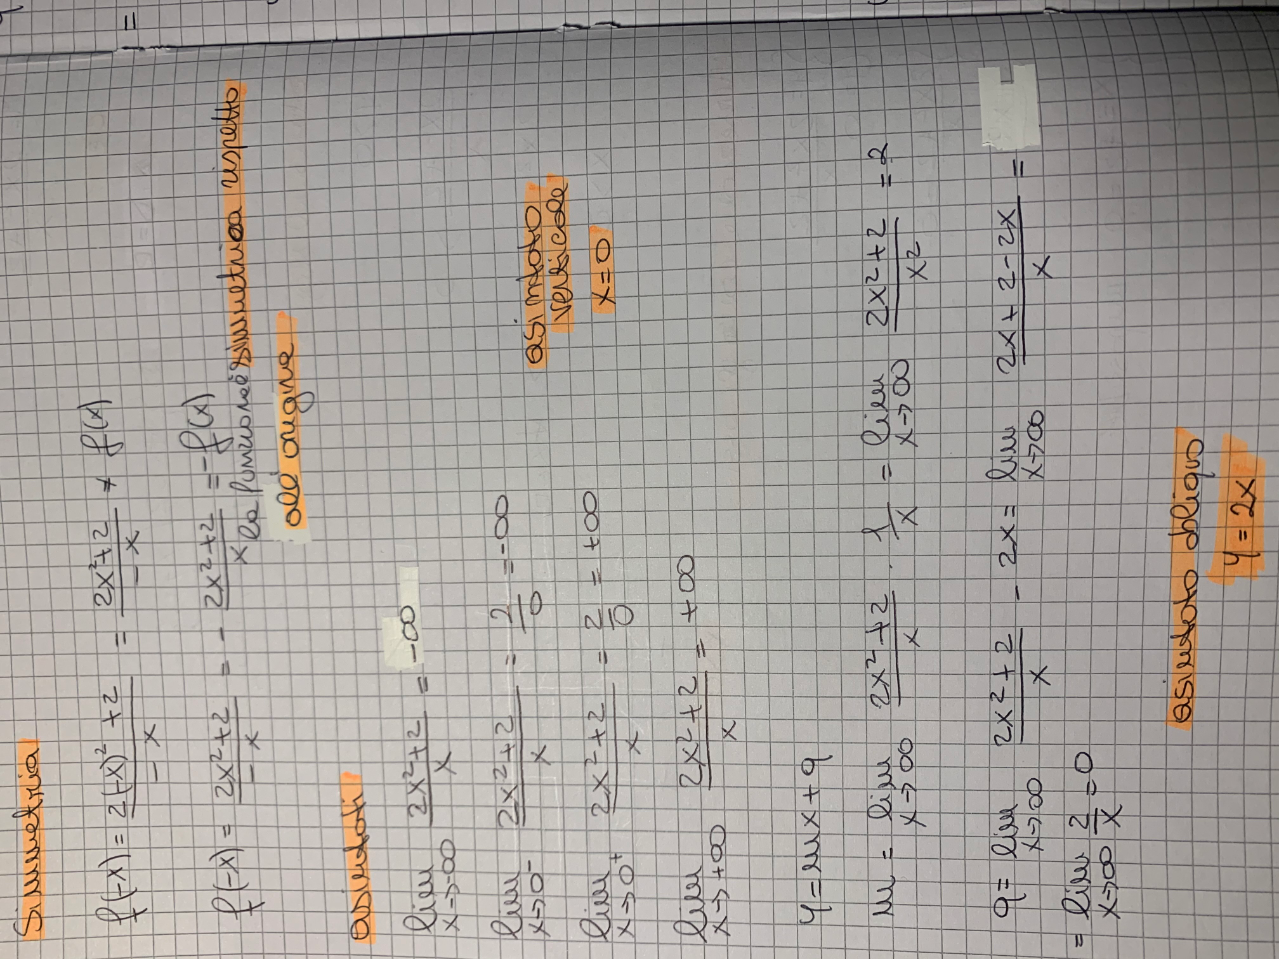 Simmetria
f(-x) = 2(-x)² + 2 / -x = 2x²+2 / -x ≠ f(x)
f(-x) = 2x²+2 / -x = - 2x²+2 / x = -f(x)
la funzione è simmetrica rispetto
all'origine
asintoti
lim x→-∞ 2x²+2 / x = -∞
lim x→0⁻ 2x²+2 / x = 2/0 = -∞
asintoto
verticale
x=0
lim x→0⁺ 2x²+2 / x = 2/0 = +∞
lim x→+∞ 2x²+2 / x = +∞
y = mx + q
m = lim x→∞ 2x²+2 / x · 1/x = lim x→∞ 2x²+2 / x² = 2
q = lim x→∞ 2x²+2 / x - 2x = lim x→∞ 2x+2-2x / x =
= lim x→∞ 2/x = 0
asintoto obliquo
y = 2x